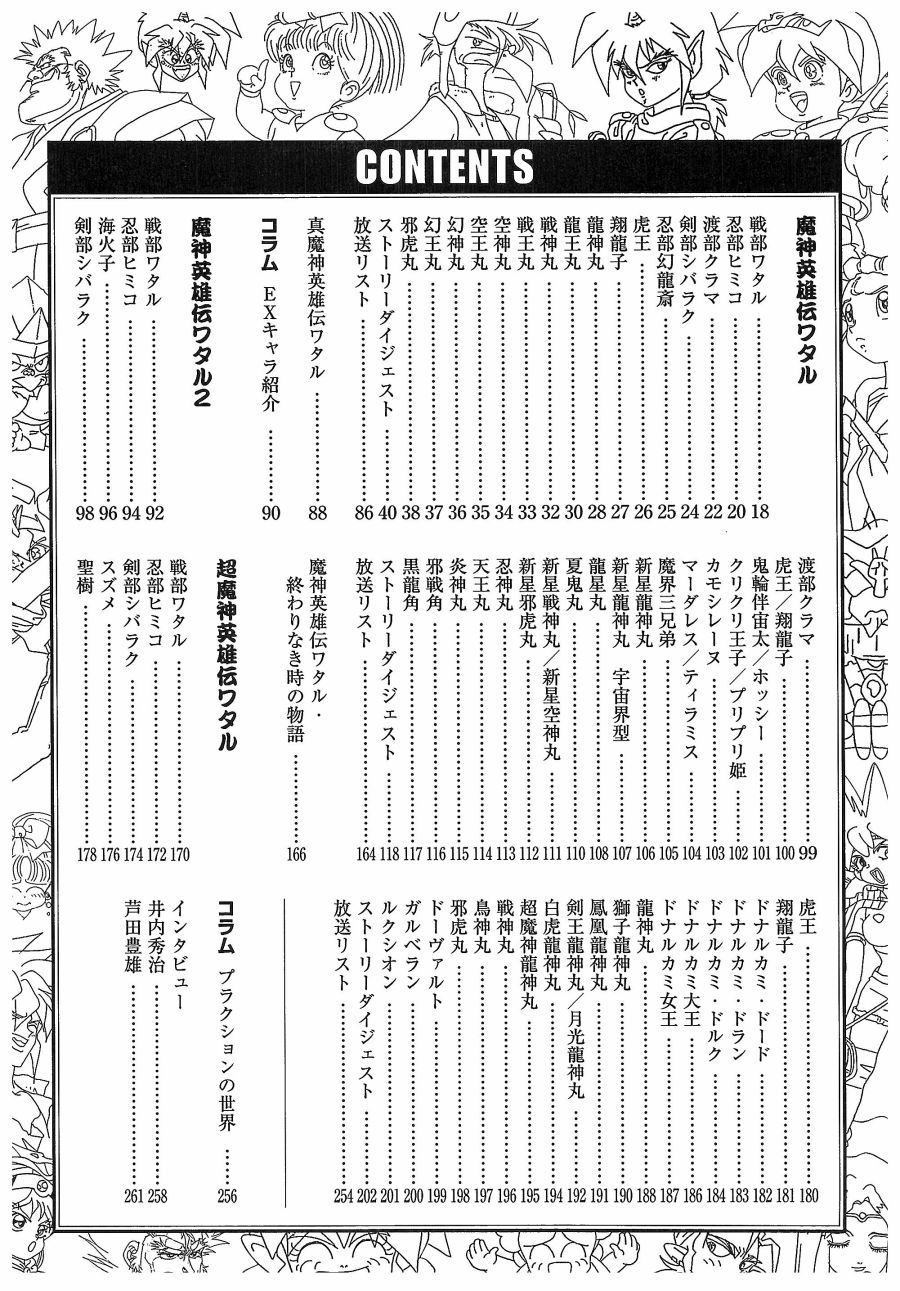 CONTENTS
魔神英雄伝ワタル
戦部ワタル……18
忍部ヒミコ……20
渡部クラマ……22
剣部シバラク……24
忍部幻龍斎……25
虎王……26
翔龍子……27
龍神丸……28
龍王丸……30
戦神丸……32
戦王丸……33
空神丸……34
空王丸……35
幻神丸……36
幻王丸……37
邪虎丸……38
ストーリーダイジェスト……40
放送リスト……86
真魔神英雄伝ワタル……88
コラム EXキャラ紹介……90
魔神英雄伝ワタル2
戦部ワタル……92
忍部ヒミコ……94
海火子……96
剣部シバラク……98
渡部クラマ……99
虎王/翔龍子……100
鬼輪伴宙太/ホッシー……101
クリクリ王子/プリプリ姫……102
カモシレーヌ……103
マーダレス/ティラミス……104
魔界三兄弟……105
新星龍神丸……106
新星龍神丸 宇宙界型……107
龍星丸……108
夏鬼丸……110
新星戦神丸/新星空神丸……111
新星邪虎丸……112
忍神丸……113
天王丸……114
炎神丸……115
邪戦角……116
黒龍角……117
ストーリーダイジェスト……118
放送リスト……164
魔神英雄伝ワタル・
終わりなき時の物語……166
超魔神英雄伝ワタル
戦部ワタル……170
忍部ヒミコ……172
剣部シバラク……174
スズメ……176
聖樹……178
虎王……180
翔龍子……181
ドナルカミ・ドード……182
ドナルカミ・ドラン……183
ドナルカミ・ドルク……184
ドナルカミ大王……186
ドナルカミ女王……187
龍神丸……188
獅子龍神丸……190
鳳凰龍神丸……191
剣王龍神丸/月光龍神丸……192
白虎龍神丸……194
超魔神龍神丸……195
戦神丸……196
鳥神丸……197
邪虎丸……198
ドーヴァルト……199
ガルベラン……200
ルクシオン……201
ストーリーダイジェスト……202
放送リスト……254
コラム プラクションの世界……256
インタビュー
井内秀治……258
芦田豊雄……261